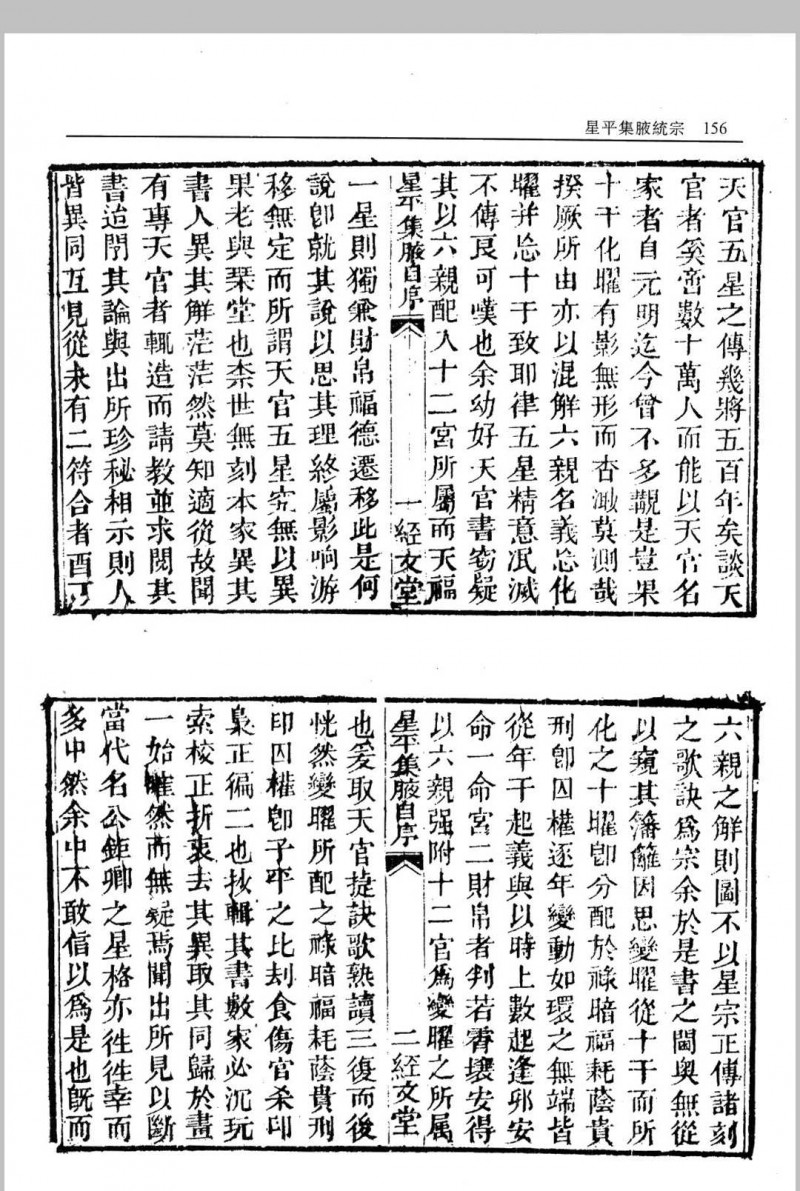 星平集腋統宗 156
天官五星之傳幾將五百年矣談天
官者奚啻數十萬人而能以天官名
家者自元明迄今曾不多觀是豈果
十干化曜有影無形而杳渺莫測哉
揆厥所由亦以混解六親名義忘化
曜并忘十干致耶律五星精意泯滅
不傳良可嘆也余幼好天官書竊疑
其以六親配入十二宮所屬而天福
星平集腋自序 一 經文堂
一星則獨兼財帛福德遷移此是何
說卽就其說以思其理終屬影响游
移無定而所謂天官五星究無以異
果老與琹堂也柰世無刻本家異其
書人異其解茫茫然莫知適從故聞
有專天官者輒造而請教並求閱其
書迨閱其論與出所珍秘相示則人
皆異同互見從未有二符合者酉
六親之解則圖不以星宗正傳諸刻
之歌訣爲宗余於是書之閫奧無從
以窺其籓籬因思變曜從十干而所
化之十曜卽分配於祿暗福耗蔭貴
刑卽囚權逐年變動如環之無端皆
從年干起義與以時上數起逢卯安
命一命宮二財帛者判若霄壤安得
以六親强附十二宮爲變曜之所属
星平集腋自序 二 經文堂
也爰取天官捷訣歌熟讀三復而後
恍然變曜所配之祿暗福耗蔭貴刑
印囚權卽子平之比刦食傷官杀印
梟正徧二也抄輯其書數家必沉玩
索校正折衷去其異取其同歸於畫
一始崔然而無疑焉聞出所見以斷
當代名公鉅卿之星格亦徃徃幸而
多中然余中不敢信以爲是也旣而